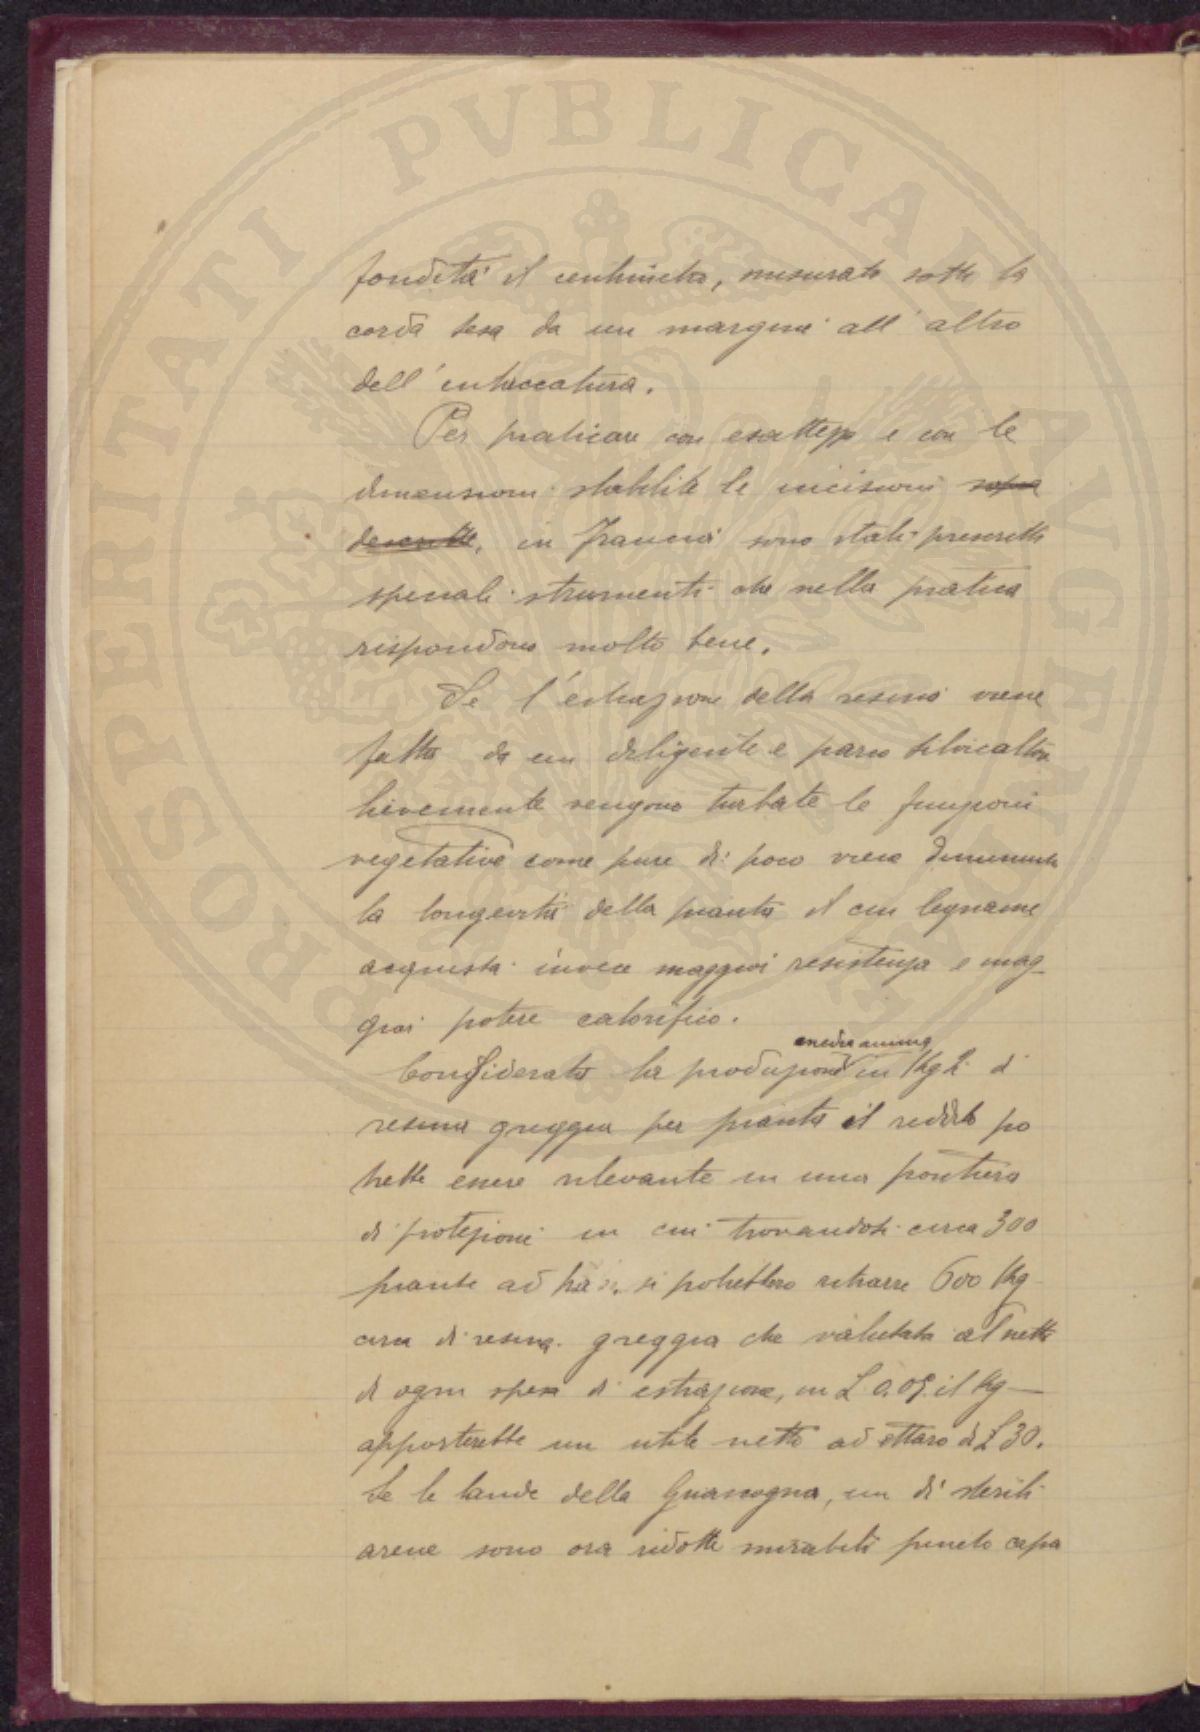 PROSPERITATI PVBLICAE AVGENDAE
fondità il centimetro, misurato sotto la
corda tesa da un margine all'altro
dell'intaccatura.
Per praticare con esattezza e con le
dimensioni stabilite le incisioni sopra
descritte, in Francia sono stati prescritti
speciali strumenti che nella pratica
rispondono molto bene.
Se l'estrazione della resina viene
fatta da un diligente e parco silvicultore
lievemente vengono turbate le funzioni
vegetative come pure di poco viene diminuita
la longevità della pianta il cui legname
acquista invece maggior resistenza e mag
gior potere calorifico.
Considerata la produzione media annua in Kg 2 di
resina greggia per pianta il reddito po
trebbe essere rilevante in una frontiera
di protezione in cui trovandosi circa 300
piante ad ha si potrebbero ritrarre 600 Kg
circa di resina greggia che valutata al netto
di ogni spesa di estrazione, in L 0.05 il Kg
apporterebbe un utile netto ad ettaro di L 30.
Se le lande della Guascogna, un dì sterili
arene sono ora ridotte mirabili pinete capa